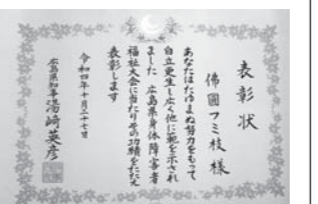 表彰状
佛圓フミ枝 様
あなたはたゆまぬ努力をもって
自立更生し広く他に範を示され
ました 広島県身体障害者
福祉大会に当りその功績をたたえ
表彰します
令和四年十月二十七日
広島県知事 湯﨑英彦